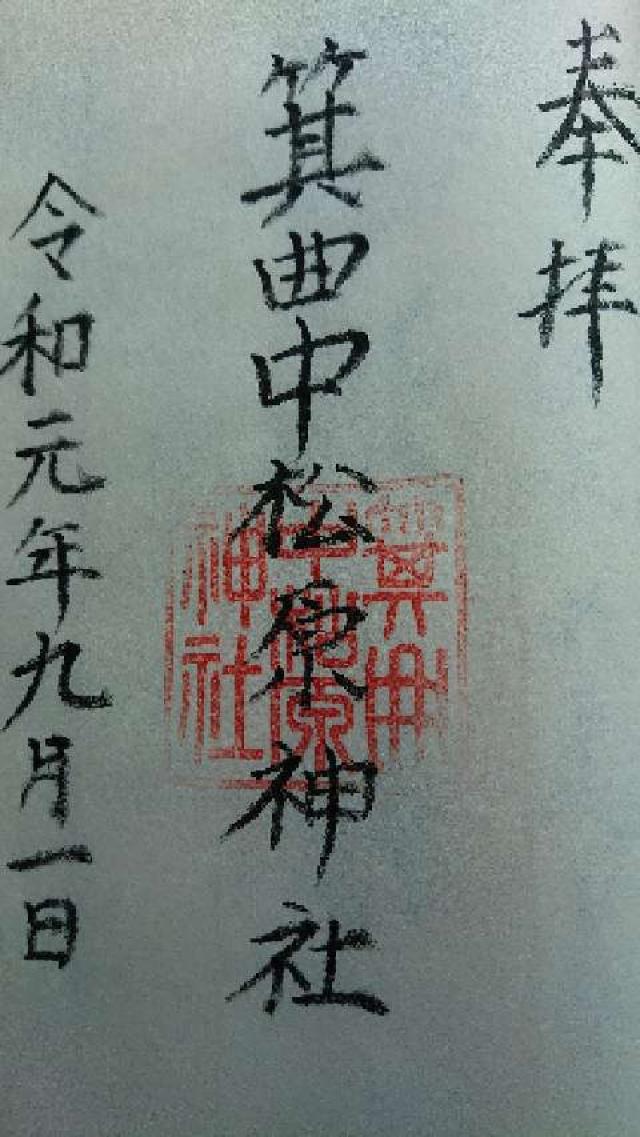 奉拝
箕曲中松原神社
令和元年九月一日
箕曲
中松原
神社